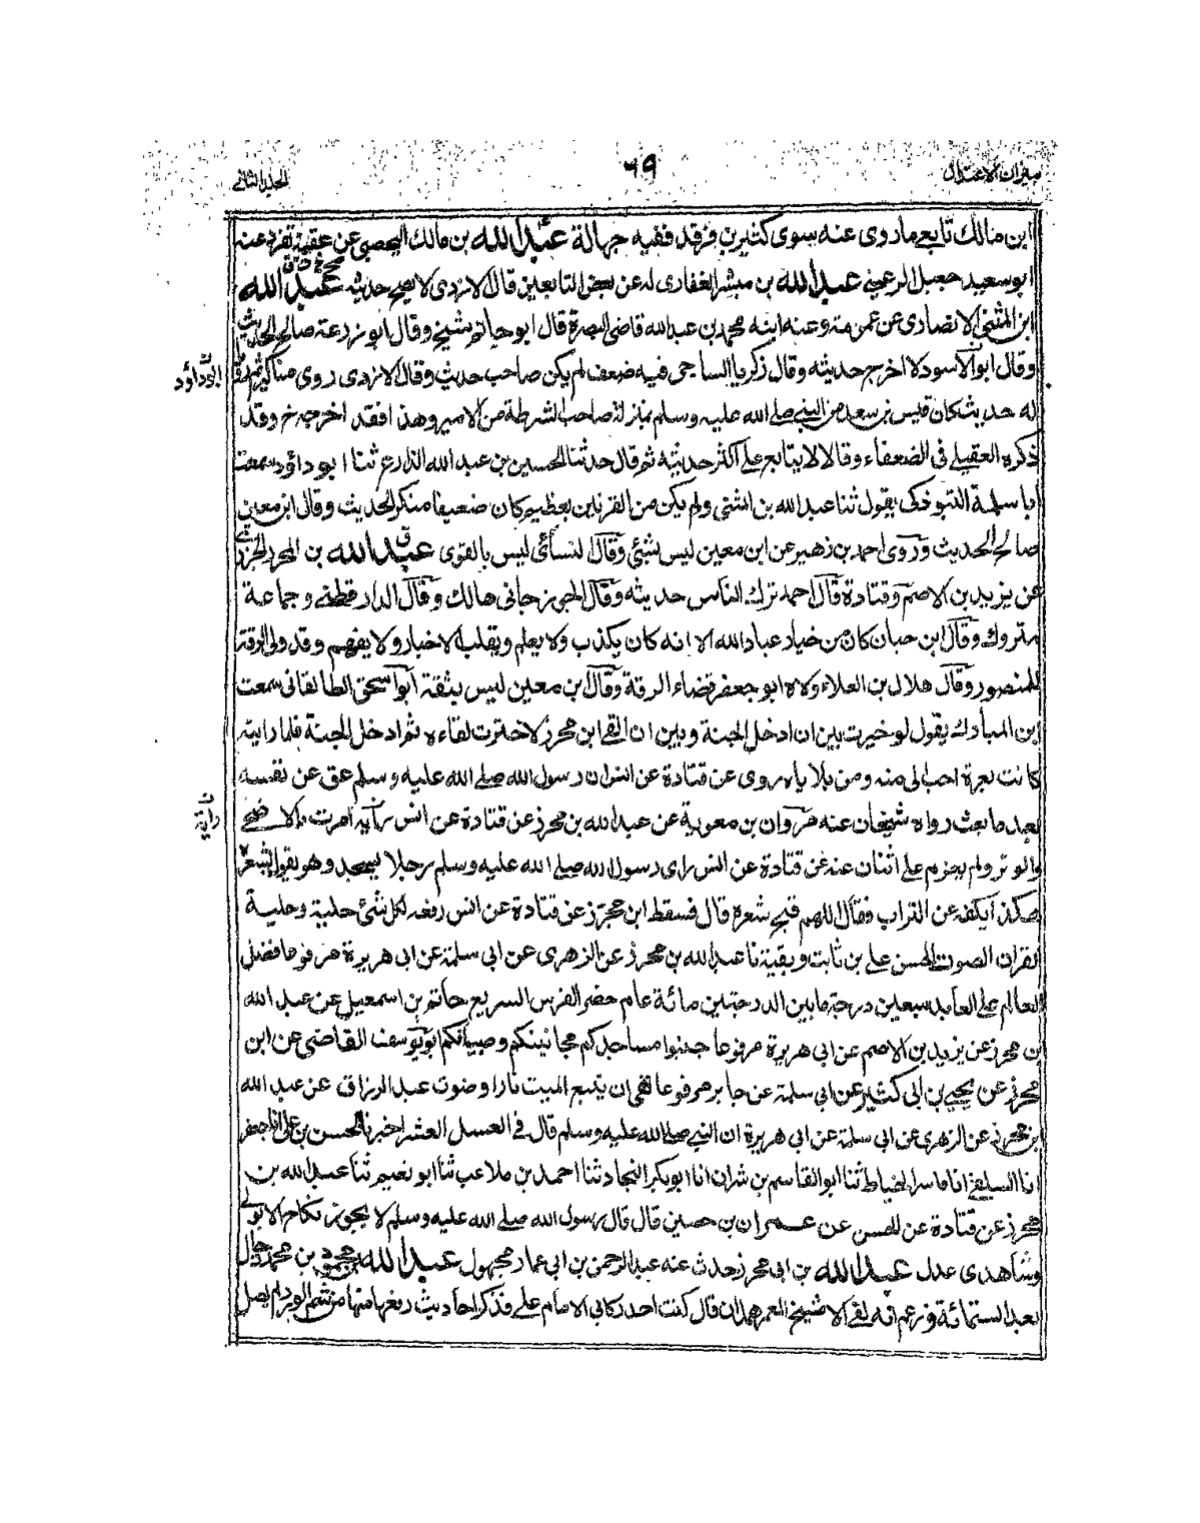 ميزان الاعتدال
٦٩
المجلد الثاني
ابن مالك تابعي ماروى عنه سوى كثير بن فرقد ففيه جهالة عبد الله بن مالك اليحصبي عن عقبة تفرد عنه
ابو سعيد جعثل الرعيني عبد الله بن مبشر الغفارى له عن بعض التابعين قال الازدى لا يصح حديثه عبد الله
ابن المثنى الانصارى عن عمومته وعنه ابنه محمد بن عبد الله قاضى البصرة قال ابو حاتم شيخ وقال ابو زرعة صالح الحديث
وقال ابو داود لا اخرج حديثه وقال زكريا الساجى فيه ضعف لم يكن صاحب حديث وقال الازدى روى مناكير
ابو داؤد
له حديث كان قيس بن سعد من النبي صلى الله عليه وسلم بمنزلة صاحب الشرطة من الامير وهذا فقد اخرجه خ وقد
ذكره العقيلي فى الضعفاء وقال لا يتابع على اكثر حديثه ثم قال حدثنا الحسين بن عبد الله الذارع ثنا ابو داؤد سمعت
ابا سلمة التبوذكى يقول ثنا عبد الله بن المثنى ولم يكن من القريتين بعظيم كان ضعيفا منكر الحديث وقال ابن معين
صالح الحديث وروى احمد بن زهير عن ابن معين ليس بشئ وقال النسائى ليس بالقوى عبد الله بن المحرر الجزرى
عن يزيد بن الاصم وقتادة قال احمد ترك الناس حديثه وقال الجوزجانى هالك وقال الدارقطني وجماعة
متروك وقال ابن حبان كان من خيار عباد الله الا انه كان يكذب ولا يعلم ويقلب الاخبار ولا يفهم وقد ولى الرقة
للمنصور وقال هلال بن العلاء ولاه ابو جعفر قضاء الرقة وقال ابن معين ليس بثقة ابو اسحق الطالقانى سمعت
ابن المبارك يقول لو خيرت بين ان ادخل الجنة وبين ان القى ابن محرز لاخترت لقاءه ثم ادخل الجنة فلما رايته
كانت بعرة احب الى منه ومن بلاياه روى عن قتادة عن انس ان رسول الله صلى الله عليه وسلم عق عن نفسه
بعد ما بعث رواه شيخان عنه مروان بن معوية عن عبد الله بن محرز عن قتادة عن انس امرت بالاضحى
والوتر ولم يعزم على اثنان عنه عن قتادة عن انس راى رسول الله صلى الله عليه وسلم رجلا يسجد وهو يقول بشعره
هكذا يكفه عن التراب فقال اللهم قبح شعره قال فسقط ابن محرز عن قتادة عن انس رفعه لكل شئ حلية وحلية
القران الصوت الحسن على بن ثابت وبقية نا عبد الله بن محرز عن الزهرى عن ابى سلمة عن ابى هريرة مرفوعا فضل
العالم على العابد سبعين درجة ما بين الدرجتين مائة عام حضر الفرس السريع حاتم بن اسمعيل عن عبد الله
بن محرز عن يزيد بن الاصم عن ابى هريرة مرفوعا جنبوا مساجدكم مجانينكم وصبيانكم ابو يوسف القاضى عن ابن
محرز عن يحيى بن ابى كثير عن ابى سلمة عن جابر مرفوعا نهى ان يتبع الميت نارا وصوت عبد الرزاق عن عبد الله
بن محرز عن الزهرى عن ابى سلمة عن ابى هريرة ان النبي صلى الله عليه وسلم قال فى العسل العشر اخبرنا الحسن بن على انا جعفر
انا السلفى انا ثنا ابو القاسم بن بشران انا ابو بكر النجاد ثنا احمد بن ملاعب ثنا ابو نعيم ثنا عبد الله بن
محرز عن قتادة عن الحسن عن عمران بن حصين قال قال رسول الله صلى الله عليه وسلم لا يجوز نكاح الا بولى
وشاهدى عدل عبد الله بن ابى محرز حدث عنه عبد الرحمن بن ابى عمار مجهول عبد الله بن محمد
بعد الستمائة وزعم انه لقى الاشج المعمر بهمدان قال كنت احد ركابى الامام على فذكر احاديث رفعها منها من شم الورد لم يصل